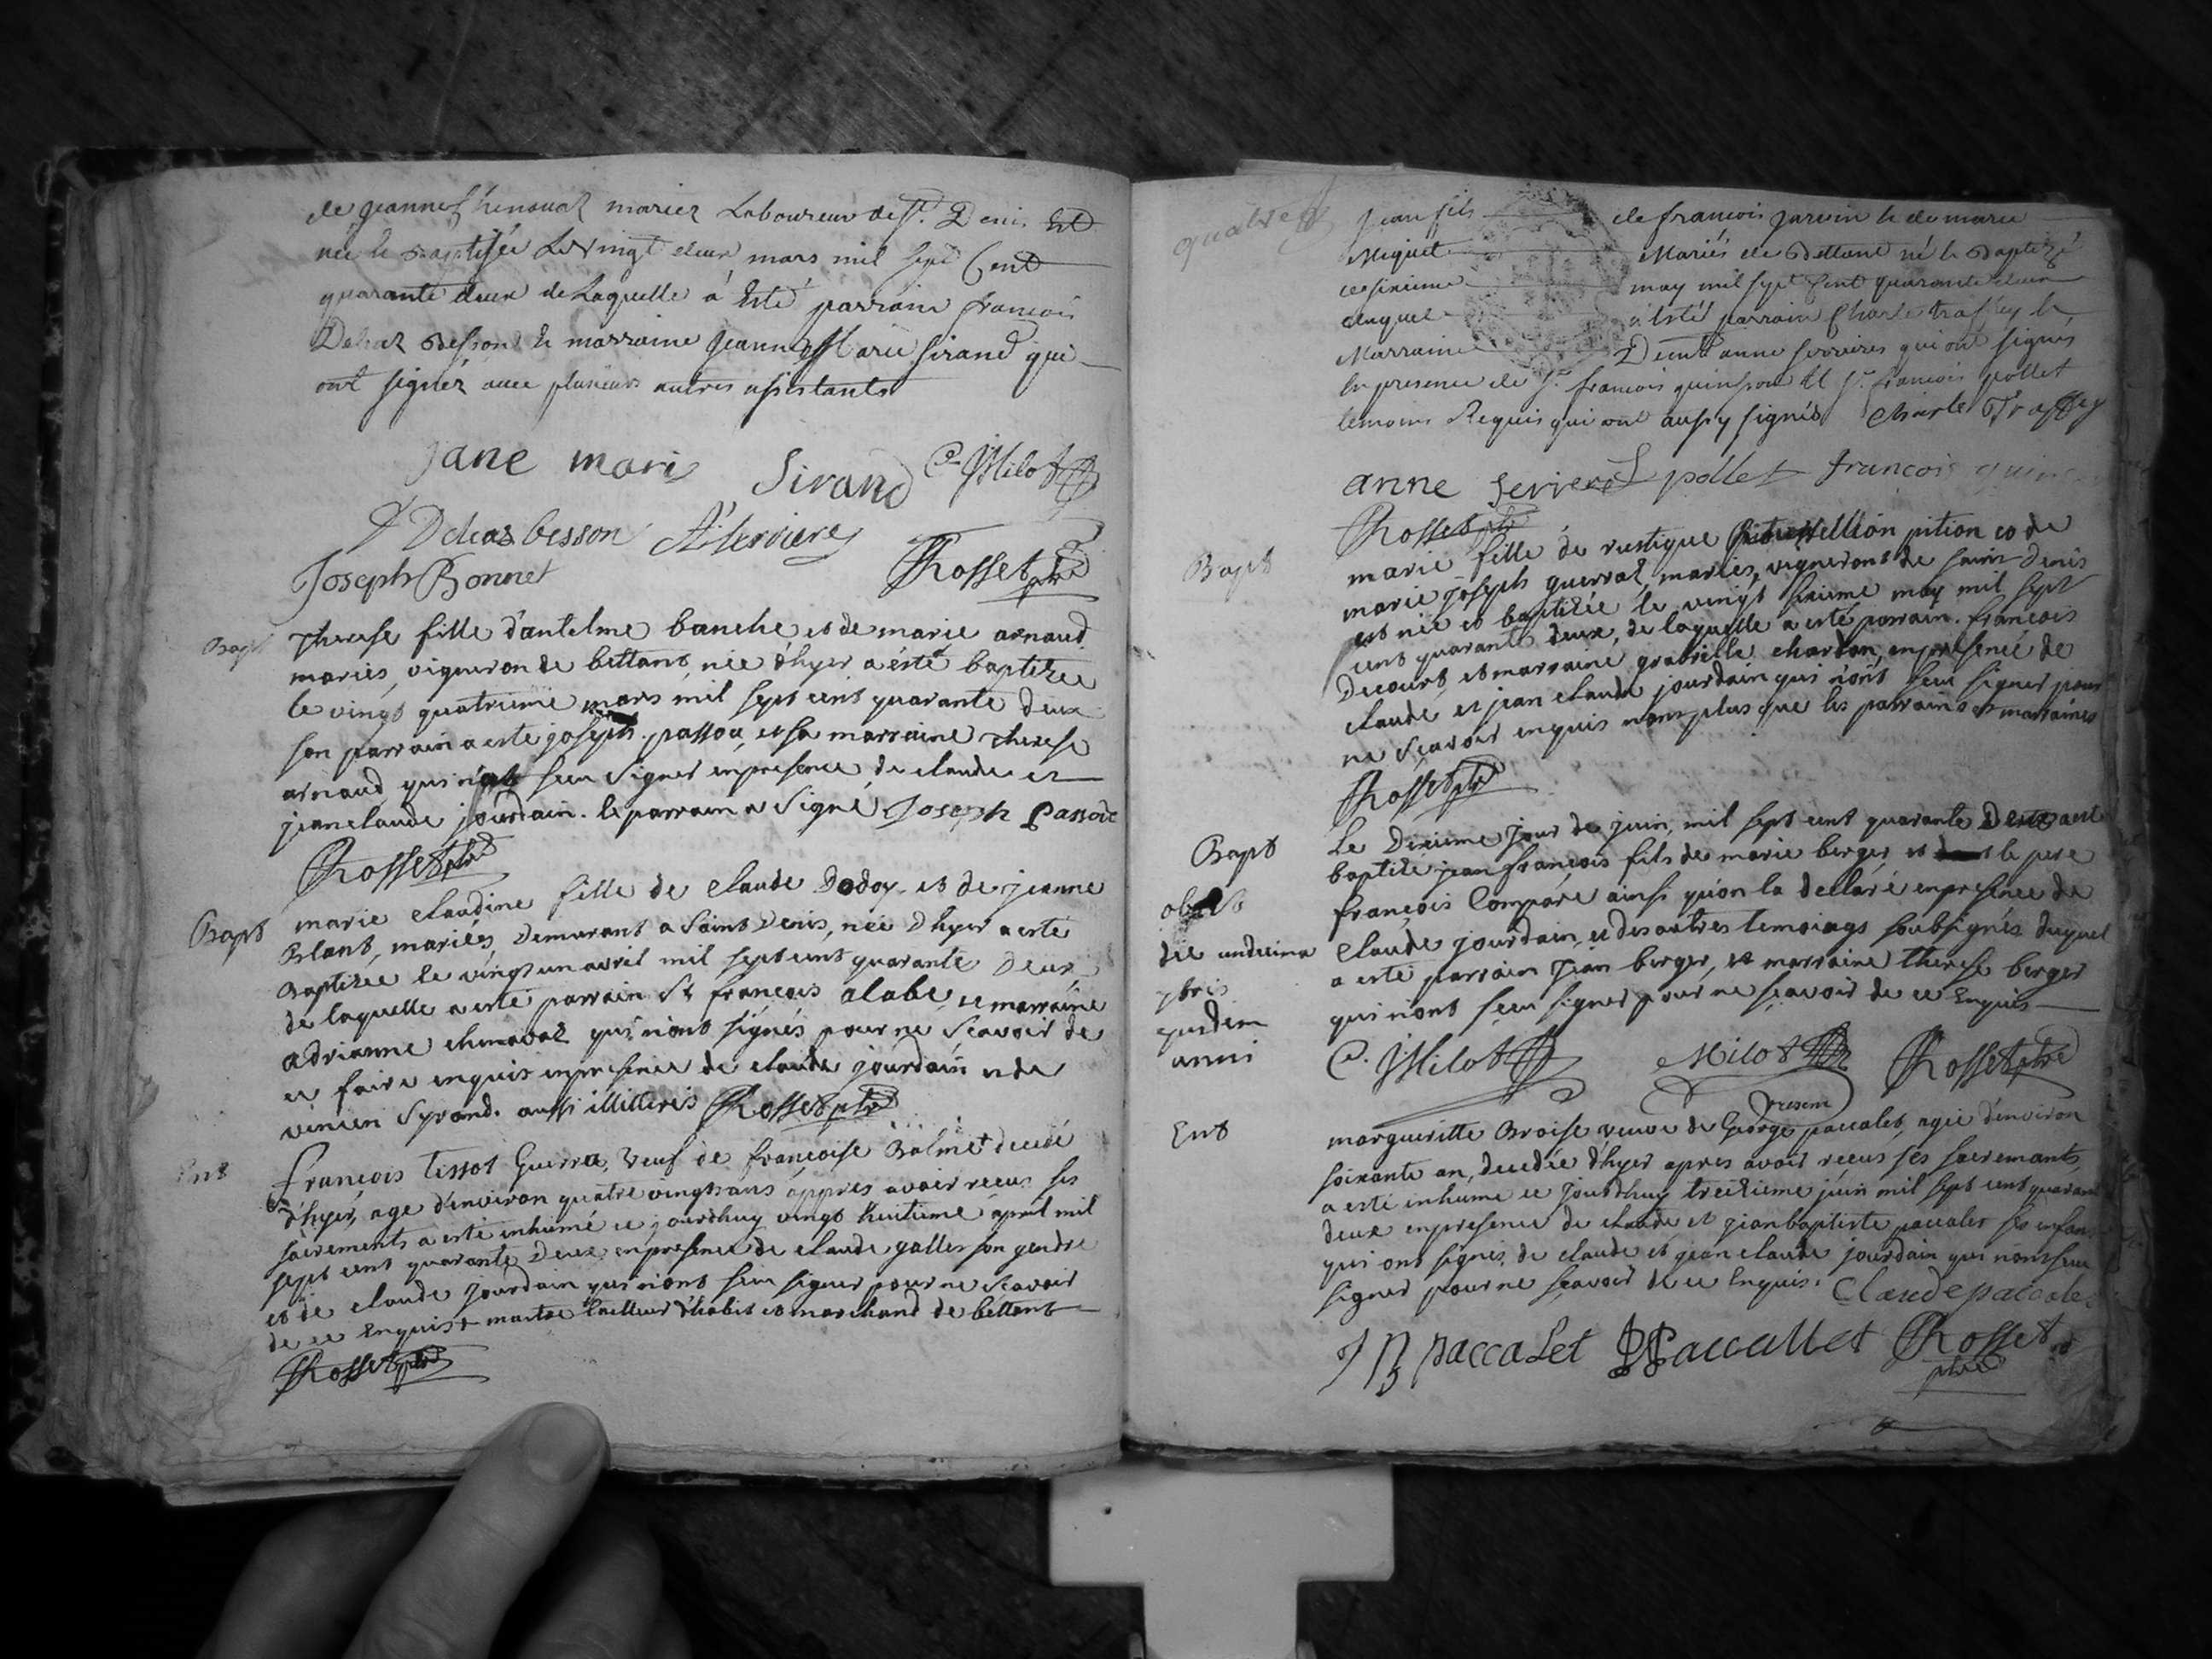 de jeanne Chenaval mariez Laboureur de St. Deni. Est
née & Baptisée Le Vingt deux mars mil sept Cent
quarante deux de Laquelle a Esté parrain francois
Delaz Besson & marraine jeanne Marie Sirand qui
ont signez avec plusieurs autres assistants
jane mari Sirand C. Milot
Delaz besson A. serviere
Joseph Bonnet Rosset ptre
Bapt
Therese fille d'antelme banche et de marie arnaud
mariés, vigneron de bettant, née d'hyer a été baptizee
le vingt quatrieme mars mil sept cent quarante deux
son parrain a esté joseph passou, et sa marraine therese
arnaud qui seu signer en presence de claude et
jean claude jourdain. le parrain a signé Joseph Passou
Rosset ptre
Bapt
marie claudine fille de Claude Dodoy et de jeanne
Blant, mariés, Demurant a Saint Denis, née D'hyer a esté
Baptizee le vingt un avril mil sept cent quarante Deux
de laquelle a esté parrain Sr françois alabe, et marraine
adrianne chenaval qui n'ont signés pour ne Scavoir de
ce faire enquis en presence de claude jourdain et de
Syrand. aussi illitterés Rosset ptre
Ent
François tissot Guerra, Veuf de françoise Balmet decedé
d'hyer, age d'environ quatre vingts ans appres avoir receu ses
sacrements a esté inhumé ce jourdhuy vingt huitieme april mil
sept cent quarante Deux en presence de claude galler son gendre
et de claude jourdain qui n'ont seu signer pour ne Scavoir
de ce Enquis + maitre tailleur d'habit et marchand de bettant
Rosset ptre
quatre
Jean fils de francois jarvin & de marie
Miguet Mariés de Bettant né & Baptizé
ce sixieme may mil sept Cent quarante deux
duquel a Esté parrain Charle traffey &
Marraine Anne serviere qui ont signés
En presence de Sr. francois quinson Et Sr. francois pollet
temoins Requis qui ont aussy signés Charle Traffey
anne serviere pollet francois quin
Rosset ptre
Bapt
marie fille de rustique pition et de
marie joseph guerraz, mariés, vignerons de saint Denis
est née et baptizée le vingt sixieme may mil sept
cent quarante deux, de laquelle a esté parrain francois
Decourt, et marraine gabrielle chardon, en presence de
claude et jean claude jourdain qui n'ont seu signer pour
ne Sçavoir enquis non plus que les parrains et marraines
Rosset ptre
Bapt
Le Dixieme jour de juin, mil sept cent quarante Deux a esté
baptizé jean françois fils de marie berger et le pere
françois Compare ainsi qu'on la declaré en presence de
Claude jourdain, et des autres temoings soubsignés duquel
a esté parrain Jean berger, et marraine therese berger
qui n'ont sçeu signer pour ne sçavoir de ce Enquis
obiit
die undecima
7bris
ejusdem
anni
C. Milot Milot Rosset ptre
Ent
presens
margueritte Broise veuve de George paccalet, agée d'environ
soixante an, decedée d'hyer apres avoir receus ses sacremants
a esté inhume ce jourdhuy treizieme juin mil sept cent quarante
deux en presence de claude et jean baptiste paccalet ses enfan
qui ont signés, de claude et jean claude jourdain qui n'ont seu
signer pour ne sçavoir de ce Enquis. Claude paccalet
J B paccalet Paccallet Rosset
ptre